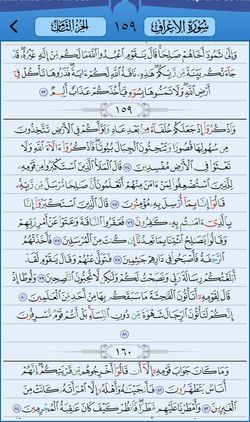 سُورَةُ الأَعْرَافِ ١٥٩ الجُزْءُ الثَّامِنُ
وَإِلَىٰ ثَمُودَ أَخَاهُمْ صَـٰلِحًا قَالَ يَـٰقَوْمِ ٱعْبُدُوا۟ ٱللَّهَ مَا لَكُم مِّنْ إِلَـٰهٍ غَيْرُهُۥ قَدْ
جَآءَتْكُم بَيِّنَةٌ مِّن رَّبِّكُمْ هَـٰذِهِۦ نَاقَةُ ٱللَّهِ لَكُمْ ءَايَةً فَذَرُوهَا تَأْكُلْ فِىٓ
أَرْضِ ٱللَّهِ وَلَا تَمَسُّوهَا بِسُوٓءٍ فَيَأْخُذَكُمْ عَذَابٌ أَلِيمٌ ٧٣
١٥٩
وَٱذْكُرُوٓا۟ إِذْ جَعَلَكُمْ خُلَفَآءَ مِنۢ بَعْدِ عَادٍ وَبَوَّأَكُمْ فِى ٱلْأَرْضِ تَتَّخِذُونَ
مِن سُهُولِهَا قُصُورًا وَتَنْحِتُونَ ٱلْجِبَالَ بُيُوتًا فَٱذْكُرُوٓا۟ ءَالَآءَ ٱللَّهِ وَلَا
تَعْثَوْا۟ فِى ٱلْأَرْضِ مُفْسِدِينَ ٧٤ قَالَ ٱلْمَلَأُ ٱلَّذِينَ ٱسْتَكْبَرُوا۟ مِن قَوْمِهِۦ
لِلَّذِينَ ٱسْتُضْعِفُوا۟ لِمَنْ ءَامَنَ مِنْهُمْ أَتَعْلَمُونَ أَنَّ صَـٰلِحًا مُّرْسَلٌ مِّن رَّبِّهِۦ
قَالُوٓا۟ إِنَّا بِمَآ أُرْسِلَ بِهِۦ مُؤْمِنُونَ ٧٥ قَالَ ٱلَّذِينَ ٱسْتَكْبَرُوٓا۟ إِنَّا
بِٱلَّذِىٓ ءَامَنتُم بِهِۦ كَـٰفِرُونَ ٧٦ فَعَقَرُوا۟ ٱلنَّاقَةَ وَعَتَوْا۟ عَنْ أَمْرِ رَبِّهِمْ
وَقَالُوا۟ يَـٰصَـٰلِحُ ٱئْتِنَا بِمَا تَعِدُنَآ إِن كُنتَ مِنَ ٱلْمُرْسَلِينَ ٧٧ فَأَخَذَتْهُمُ
ٱلرَّجْفَةُ فَأَصْبَحُوا۟ فِى دَارِهِمْ جَـٰثِمِينَ ٧٨ فَتَوَلَّىٰ عَنْهُمْ وَقَالَ يَـٰقَوْمِ لَقَدْ
أَبْلَغْتُكُمْ رِسَالَةَ رَبِّى وَنَصَحْتُ لَكُمْ وَلَـٰكِن لَّا تُحِبُّونَ ٱلنَّـٰصِحِينَ ٧٩ وَلُوطًا إِذْ
قَالَ لِقَوْمِهِۦٓ أَتَأْتُونَ ٱلْفَـٰحِشَةَ مَا سَبَقَكُم بِهَا مِنْ أَحَدٍ مِّنَ ٱلْعَـٰلَمِينَ ٨٠
إِنَّكُمْ لَتَأْتُونَ ٱلرِّجَالَ شَهْوَةً مِّن دُونِ ٱلنِّسَآءِ بَلْ أَنتُمْ قَوْمٌ مُّسْرِفُونَ
٨١
١٦٠
وَمَا كَانَ جَوَابَ قَوْمِهِۦٓ إِلَّآ أَن قَالُوٓا۟ أَخْرِجُوهُم مِّن قَرْيَتِكُمْ إِنَّهُمْ
أُنَاسٌ يَتَطَهَّرُونَ ٨٢ فَأَنجَيْنَـٰهُ وَأَهْلَهُۥٓ إِلَّا ٱمْرَأَتَهُۥ كَانَتْ مِنَ
ٱلْغَـٰبِرِينَ ٨٣ وَأَمْطَرْنَا عَلَيْهِم مَّطَرًا فَٱنظُرْ كَيْفَ كَانَ عَـٰقِبَةُ ٱلْمُجْرِمِينَ ٨٤